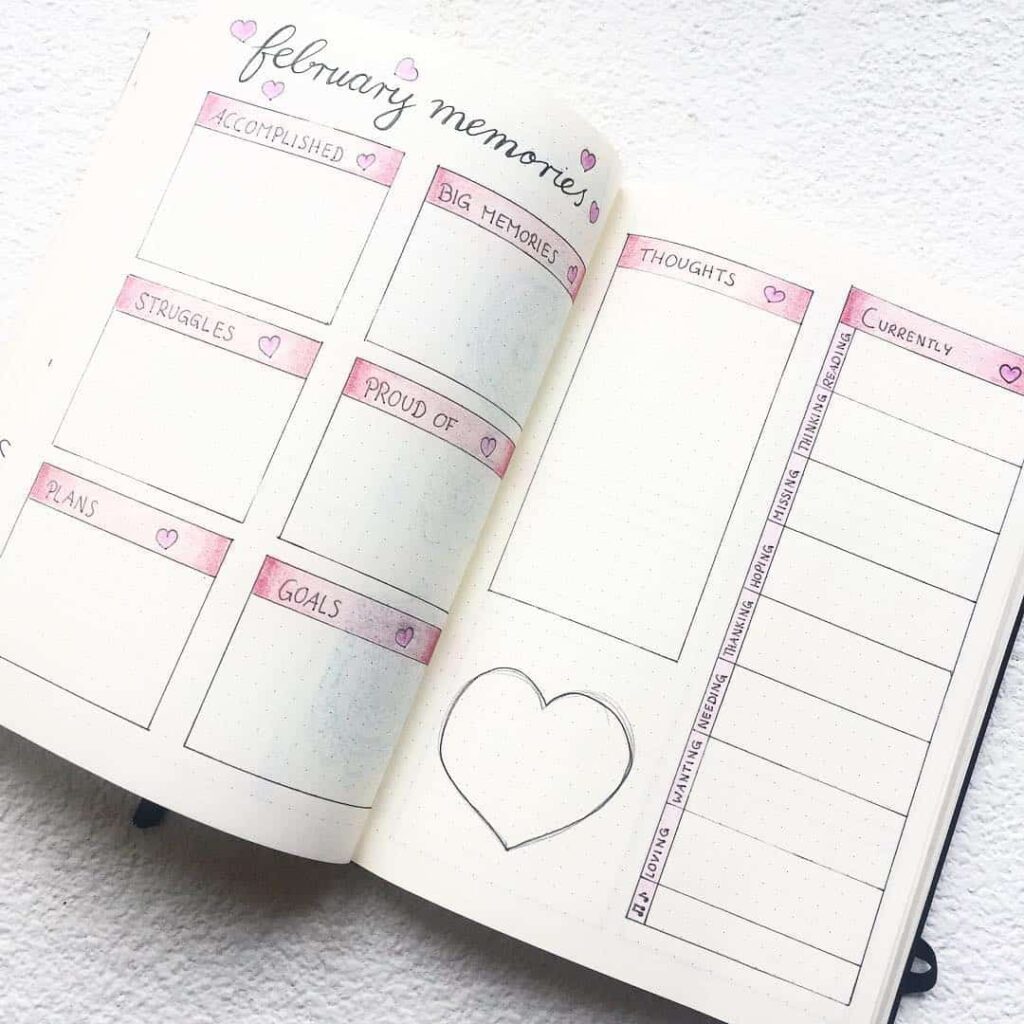 february memories
ACCOMPLISHED
BIG MEMORIES
STRUGGLES
PROUD OF
PLANS
GOALS
THOUGHTS
CURRENTLY
READING
THINKING
MISSING
HOPING
THANKING
NEEDING
WANTING
LOVING